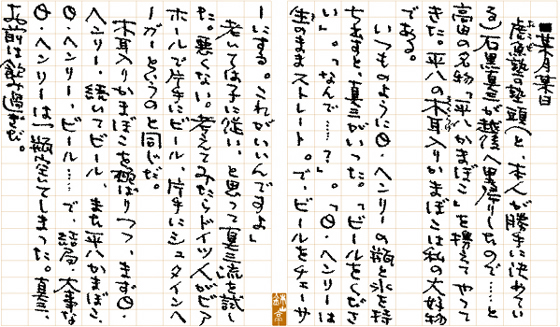 ■某月某日
虎魚塾の塾頭(と、本人が勝手に決めてい
る)石黒真三が越後へ里帰りしたので……と
高田の名物「平八かまぼこ」を携えてやって
きた。平八の木耳入りかまぼこは私の大好物
である。
いつものようにO・ヘンリーの瓶と水を持
ちだすと、真三がいった。「ビールをくださ
い」。「なんで……?」。「O・ヘンリーは
生のままストレート。で、ビールをチェーサ
ーにする。これがいいんですよ」
老いては子に従い、と思って真三流を試し
た。悪くない。考えてみたらドイツ人がビア
ホールで片手にビール、片手にシュタインヘ
ーガーというのと同じだ。
木耳入りかまぼこを頬ばりつつ、まずO・
ヘンリー、続いてビール、また平八かまぼこ、
O・ヘンリー、ビール……で、結局、大事な
O・ヘンリーは一瓶空いてしまった。真三、
お前は飲み過ぎだ。